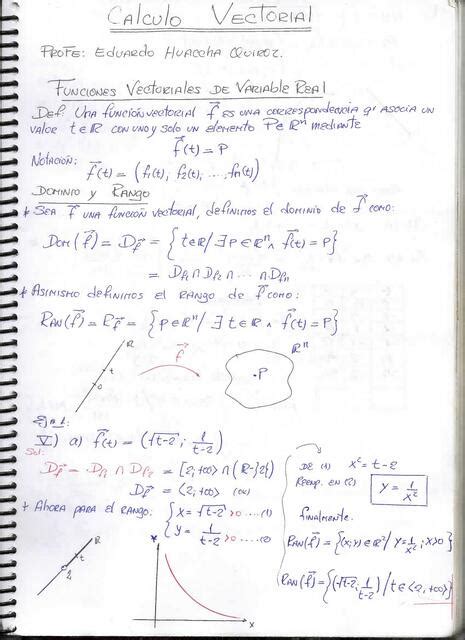 CALCULO VECTORIAL
PROFE: EDUARDO HUACCHA QUIROZ.
FUNCIONES VECTORIALES DE VARIABLE REAL
Def: Una función vectorial f⃗ es una correspondencia q' asocia un
valor t ∈ ℝ con uno y solo un elemento P ∈ ℝⁿ mediante
f⃗(t) = P
Notación:
f⃗(t) = (f₁(t), f₂(t), ...., fₙ(t))
DOMINIO Y RANGO
* Sea f⃗ una función vectorial, definimos el dominio de f⃗ como:
Dom(f⃗) = D_f⃗ = {t∈ℝ / ∃ P∈ℝⁿ ∧ f⃗(t) = P}
= Df₁ ∩ Df₂ ∩ ... ∩ Dfₙ
* Asimismo definimos el rango de f⃗ como:
Ran(f⃗) = R_f⃗ = {P∈ℝⁿ / ∃ t∈ℝ ∧ f⃗(t) = P}
ℝ
t
0
f⃗
ℝⁿ
.P
Ejm 1:
V) a) f⃗(t) = (√t-2 ; 1/t-2)
Sol:
D_f⃗ = Df₁ ∩ Df₂ = [2,+∞⟩ ∩ (ℝ-{2})
D_f⃗ = ⟨2,+∞⟩
* Ahora para el rango:
{ x = √t-2 >0 ....(1)
y = 1/t-2 >0 ....(2)
De (1) x² = t-2
Reemp. en (2) y = 1/x²
finalmente.
Ran(f⃗) = {(x;y)∈ℝ² / y = 1/x² ; x>0}
Ran(f⃗) = {(√t-2 ; 1/t-2) / t∈⟨2,+∞⟩}
ℝ
t
2
Y
X